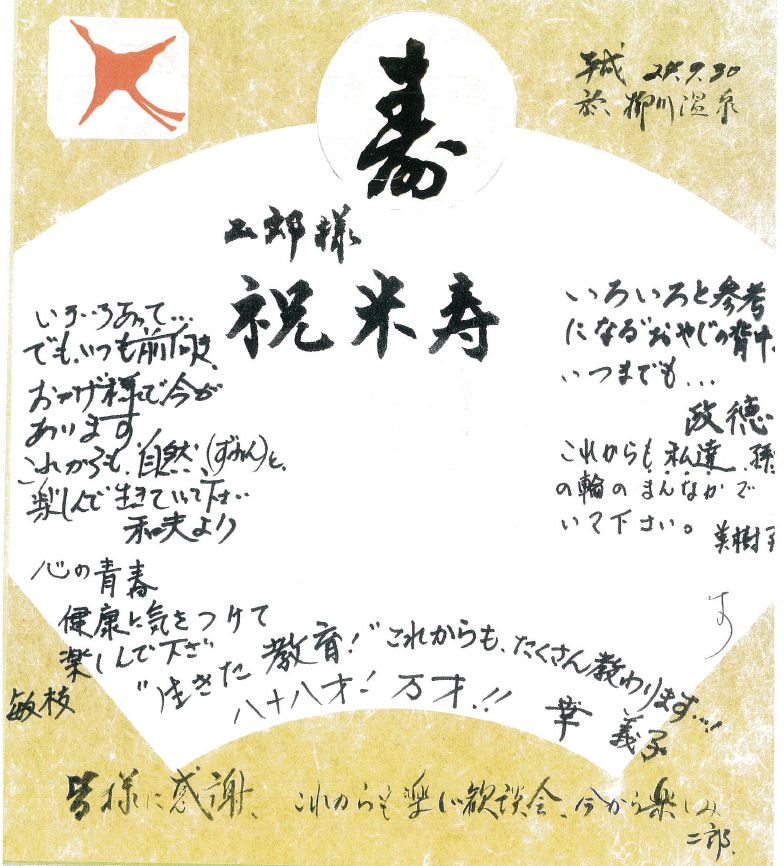 寿
平成 24.9.30
於、柳川温泉
二郎様
祝米寿
いろいろと参考
になる"おやじの背中、
いつまでも...
政徳
これからも、私達、孫
の輪のまんなかで
いて下さい。
美樹
いろいろあって...
でも、いつも前向き、
おかげ様で、今が
あります
これからも、自然(ずみん)と、
楽しんで生きていって下さい
和夫より
心の青春
健康に気をつけて
楽しんで下さい
敏枝
"生きた教育!"これからも、たくさん教わります...!
八十八才! 万才!!
幸 義子
皆様に感謝、これからも楽しい歓談会、今から楽しみ
二郎